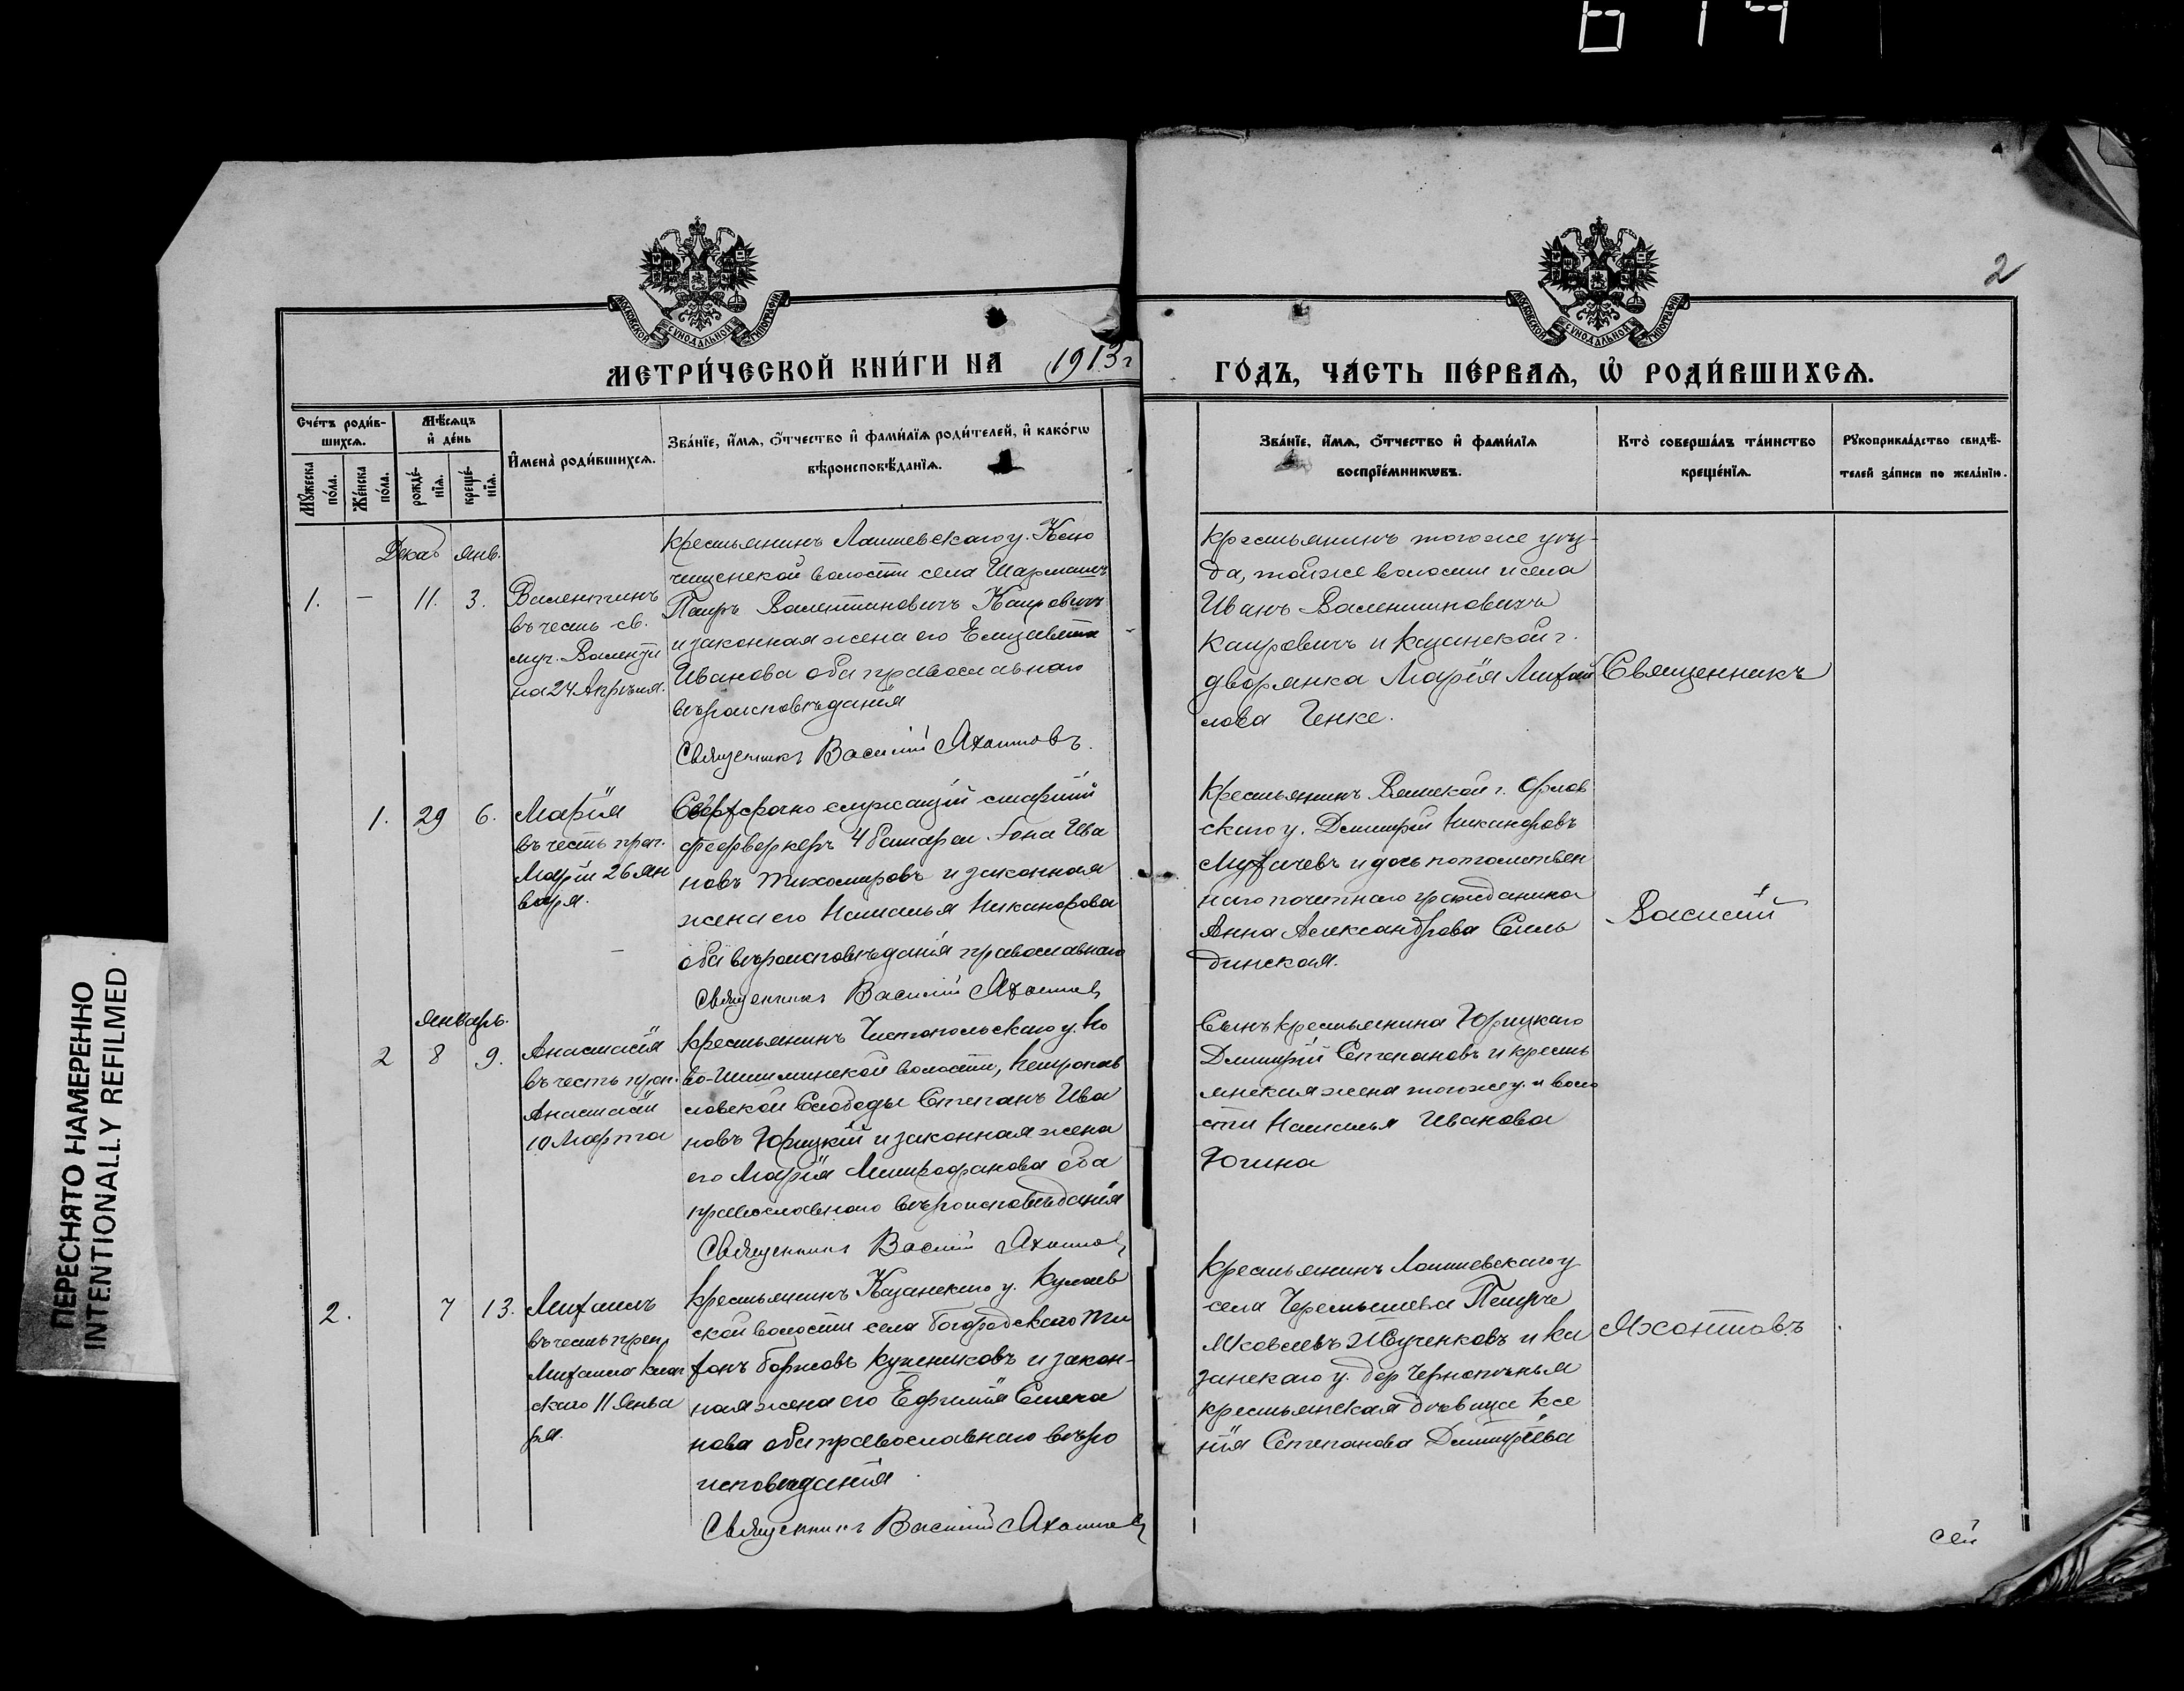 614
ПЕРЕСНЯТО НАМЕРЕННО
INTENTIONALLY REFILMED
2
МОСКОВСКОЙ СѴНОДАЛЬНОЙ ТИПОГРАФІИ
МОСКОВСКОЙ СѴНОДАЛЬНОЙ ТИПОГРАФІИ
МЕТРИ́ЧЕСКОЙ КНИ́ГИ НА 1913 г
ГО́ДЪ, ЧА́СТЬ ПЕ́РВАѦ, Ѡ҆ РОДИ́ВШИХСѦ.
Сче́тъ роди́в-
шихсѧ.
Мꙋ́жеска по́ла.
Же́нска по́ла.
Мѣ́сѧцъ
и҆ де́нь
рожде́-
нїѧ.
креще́-
нїѧ.
И҆мена̀ роди́вшихсѧ.
Зва́нїе, и҆́мѧ, ѻ҆́тчество и҆ фами́лїѧ роди́телей, и҆ како́гѡ
вѣроисповѣ́данїѧ.
Зва́нїе, и҆́мѧ, ѻ҆́тчество и҆ фами́лїѧ
воспрїе́мникѡвъ.
Кто̀ соверша́лъ та́инство
креще́нїѧ.
Рꙋкоприкла́дство свидѣ́-
телей за́писи по жела́нїю.
Декаб янв.
1. — 11. 3.
Валентинъ
въ честь св.
муч. Валенти
на 24 Апрѣля.
Крестьянинъ Лаишевскаго у.
волости села
Петръ Валентиновичъ Капровичъ
и законная жена его Елизавета
Иванова оба православнаго
вѣроисповѣданія
Священникъ Василій Яхонтовъ.
Крестьянинъ того же уѣз-
да, той же волости и села
Иванъ Валентиновичъ
Капровичъ и Казанской г.
дворянка Марія Михай
лова Генке.
Священникъ
1. 29 6.
Марія
въ честь преп.
Маріи 26 Ян
варя.
Сверхсрочно служащій старшій
фейрверкеръ 4 батареи Іона Ива
новъ Тихомировъ и законная
жена его Наталья Никанорова
оба вѣроисповѣданія православнаго
Священникъ Василій Яхонтовъ
Крестьянинъ Вятской г. Орлов
скаго у. Димитрій Никаноровъ
и дочь потомствен
наго почетнаго гражданина
Анна Александрова Сель
динская.
Василій
Январь.
2 8 9.
Анастасія
въ честь преп.
Анастасіи
10 Марта
Крестьянинъ Чистопольскаго у. Но
во-Шешминской волости, Петропав
ловской Слободы Степанъ Ива
новъ Юрицкій и законная жена
его Марія Митрофанова оба
православнаго вѣроисповѣданія
Священникъ Василій Яхонтовъ
Сынъ крестьянина Юрицкаго
Димитрій Степановъ и кресть
янская жена того же у. и воло
сти Наталья Иванова
Югина
2. 7 13.
Михаилъ
въ честь преп.
Михаила Клоп
скаго 11 Янва
ря.
Крестьянинъ Казанскаго у. Кулаев
ской волости села Богородскаго Ти
хонъ Борисовъ Купчиковъ и закон-
ная жена его Ефимія Степа
нова оба православнаго вѣро
исповѣданія
Священникъ Василій Яхонтовъ
Крестьянинъ Лаишевскаго у
села Черемышева Петръ
Яковлевъ Жученковъ и Ка
занскаго у. дер Чернопенья
крестьянская дѣвица Ксе
нія Степанова Димитріева
Яхонтовъ
сей